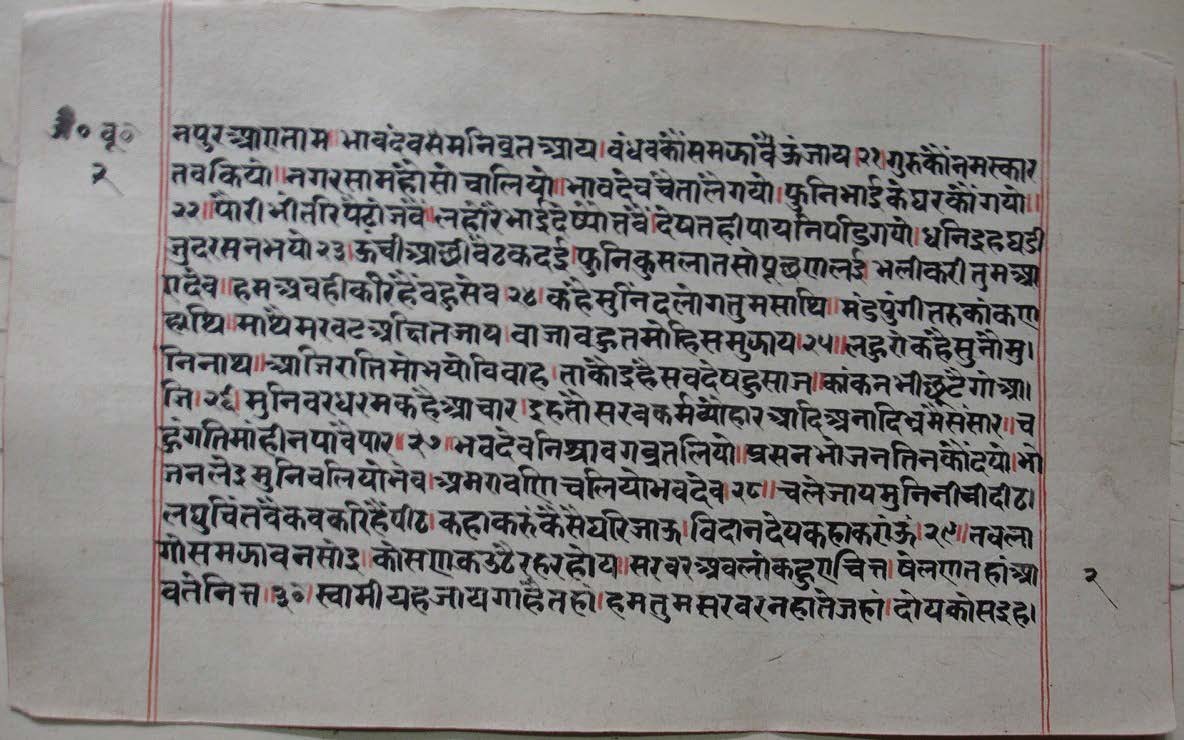 जं० बू०
२
नपुर आएताम॥ भावदेव समनिव्रत आय। वंधव कौं समफावै ऊंजाय।२१। गुरु कौं नमस्कार
तव कियो॥ नगर सामंहो सो चालियो॥ भावदेव चैतालै गयो। फुनि भाई के घर कौं गयो॥
२२॥ पौरी भीतरि पैठो जवै॥ लहौरै भाई देष्यौ तवै। देषत ही पायनि पडि गयो। धनि इह घडी
जु दरसन भयो २३। ऊची आछी वैठक दई। फुनि कुसलात सो पूछण लई॥ भली करी तुम आ
ए देव॥ हम अवही करिहैं वहु सेव २४। कहै मुनिंद लोग तुम साथि॥ मंडपु गीत रु कांकण
हाथि॥ माथै मरवट अछित जाय। वाजा वहुत मोहि समुफाय।२५॥ लहुरो कहै सुनौ मु।
निनाथ॥ आजि राति मो भयो विवाह। ताकौ इहै सव देषहु साज। कांकन भी छूटैगो आ।
जि।२६। मुनिवर धरम कहै आचार। इह तौ सरव कर्म व्यौहार आदि अनादि भ्रमै संसार॥ च
हुंगति मांही न पावै पार॥२७॥ भवदेवनि श्रावग व्रत लियो॥ प्रसन भोजन तिन कौं दयो। भो
जन लेइ मुनि चलियो भेव। अमरावणि चलियो भवदेव।२८॥ चले जाय मुनि नीची दीठ।
लघु चिंतवै कव करिहै पीठ। कहा करुं कैसै घरि जाऊ। विदा न देय कहा करौं ऊं।२९॥ तव ला
गो समफावन सोइ॥ कोस एक उठै रहर होय॥ सरवर अवलोकहु ए चित्त। षेलण तहां आ
वते नित्त॥३०। स्वामी यह जायगा है तहो। हम तुम सरवर नहाते जहां। दोय कोस इह।
२